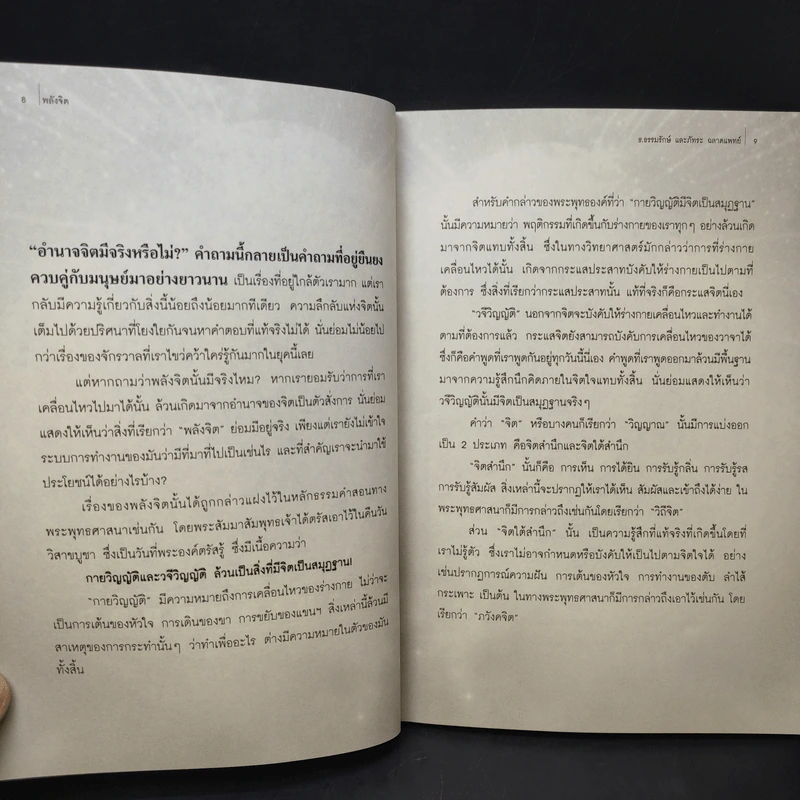 8 พลังจิต
“อำนาจจิตมีจริงหรือไม่?” คำถามนี้กลายเป็นคำถามที่อยู่ยืนยง
ควบคู่กับมนุษย์มาอย่างยาวนาน เป็นเรื่องที่อยู่ใกล้ตัวเรามาก แต่เรา
กลับมีความรู้เกี่ยวกับสิ่งนี้น้อยถึงน้อยมากทีเดียว ความลึกลับแห่งจิตนั้น
เต็มไปด้วยปริศนาที่โยงใยกันจนหาคำตอบที่แท้จริงไม่ได้ นั่นย่อมไม่น้อยไป
กว่าเรื่องของจักรวาลที่เราไขว่คว้าใคร่รู้กันมากในยุคนี้เลย
แต่หากถามว่าพลังจิตนั้นมีจริงไหม? หากเรายอมรับว่าการที่เรา
เคลื่อนไหวไปมาได้นั้น ล้วนเกิดมาจากอำนาจของจิตเป็นตัวสั่งการ นั่นย่อม
แสดงให้เห็นว่าสิ่งที่เรียกว่า “พลังจิต” ย่อมมีอยู่จริง เพียงแต่เรายังไม่เข้าใจ
ระบบการทำงานของมันว่ามีที่มาที่ไปเป็นเช่นไร และที่สำคัญเราจะนำมาใช้
ประโยชน์ได้อย่างไรบ้าง?
เรื่องของพลังจิตนั้นได้ถูกกล่าวแฝงไว้ในหลักธรรมคำสอนทาง
พระพุทธศาสนาเช่นกัน โดยพระสัมมาสัมพุทธเจ้าได้ตรัสเอาไว้ในคืนวัน
วิสาขบูชา ซึ่งเป็นวันที่พระองค์ตรัสรู้ ซึ่งมีเนื้อความว่า
กายวิญญัติและวจีวิญญัติ ล้วนเป็นสิ่งที่มีจิตเป็นสมุฏฐาน
“กายวิญญัติ” มีความหมายถึงการเคลื่อนไหวของร่างกาย ไม่ว่าจะ
เป็นการเต้นของหัวใจ การเดินของขา การขยับของแขนฯ สิ่งเหล่านี้ล้วนมี
สาเหตุของการกระทำนั้นๆ ว่าทำเพื่ออะไร ต่างมีความหมายในตัวของมัน
ทั้งสิ้น
ธ.ธรรมรักษ์ และภัทระ ฉลาดแพทย์ 9
สำหรับคำกล่าวของพระพุทธองค์ที่ว่า “กายวิญญัติมีจิตเป็นสมุฏฐาน”
นั้นมีความหมายว่า พฤติกรรมที่เกิดขึ้นกับร่างกายของเราทุกๆ อย่างล้วนเกิด
มาจากจิตแทบทั้งสิ้น ซึ่งในทางวิทยาศาสตร์มักกล่าวว่าการที่ร่างกาย
เคลื่อนไหวได้นั้น เกิดจากกระแสประสาทบังคับให้ร่างกายเป็นไปตามที่
ต้องการ ซึ่งสิ่งที่เรียกว่ากระแสประสาทนั้น แท้ที่จริงก็คือกระแสจิตนี่เอง
“วจีวิญญัติ” นอกจากจิตจะบังคับให้ร่างกายเคลื่อนไหวและทำงานได้
ตามที่ต้องการแล้ว กระแสจิตยังสามารถบังคับการเคลื่อนไหวของวาจาได้
ซึ่งก็คือคำพูดที่เราพูดกันอยู่ทุกวันนี้นี่เอง คำพูดที่เราพูดออกมาล้วนมีพื้นฐาน
มาจากความรู้สึกนึกคิดภายในจิตใจแทบทั้งสิ้น นั่นย่อมแสดงให้เห็นว่า
วจีวิญญัตินั้นมีจิตเป็นสมุฏฐานจริงๆ
คำว่า “จิต” หรือบางคนก็เรียกว่า “วิญญาณ” นั้นมีการแบ่งออก
เป็น 2 ประเภท คือจิตสำนึกและจิตใต้สำนึก
“จิตสำนึก” นั้นก็คือ การเห็น การได้ยิน การรับรู้กลิ่น การรับรู้รส
การรับรู้สัมผัส สิ่งเหล่านี้จะปรากฏให้เราได้เห็น สัมผัสและเข้าถึงได้ง่าย ใน
พระพุทธศาสนาก็มีการกล่าวถึงเช่นกันโดยเรียกว่า “วิถีจิต”
ส่วน “จิตใต้สำนึก” นั้น เป็นความรู้สึกที่แท้จริงที่เกิดขึ้นโดยที่
เราไม่รู้ตัว ซึ่งเราไม่อาจกำหนดหรือบังคับให้เป็นไปตามจิตใจได้ อย่าง
เช่นปรากฏการณ์ความฝัน การเต้นของหัวใจ การทำงานของตับ ลำไส้
กระเพาะ เป็นต้น ในทางพระพุทธศาสนาก็มีการกล่าวถึงเอาไว้เช่นกัน โดย
เรียกว่า “ภวังคจิต”